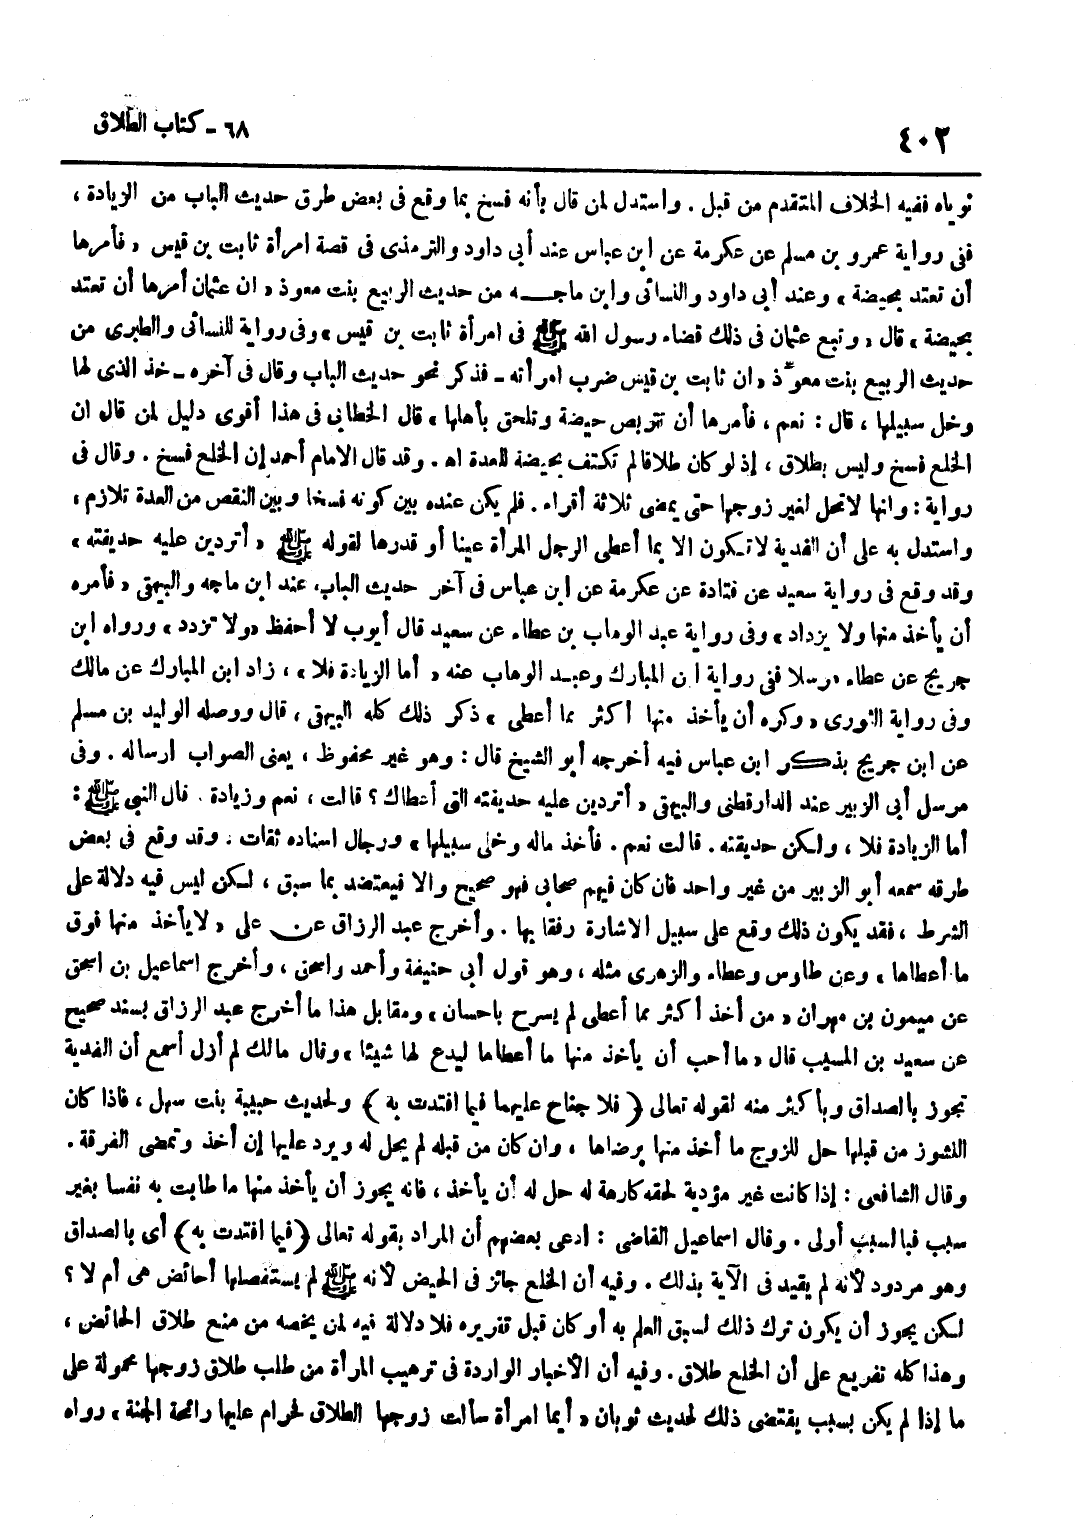 ٤٠٢
٦٨ - كتاب الطلاق
نوياه ففيه الخلاف المتقدم من قبل . واستدل لمن قال بأنه فسخ بما وقع فى بعض طرق حديث الباب من الزيادة ،
ففى رواية عمرو بن مسلم عن عكرمة عن ابن عباس عند أبى داود والترمذى فى قصة امرأة ثابت بن قيس « فأمرها
أن تعتد بحيضة » وعند أبى داود والنسائى وابن ماجـــه من حديث الربيع بنت معوذ « ان عثمان أمرها أن تعتد
بحيضة » قال « وتبع عثمان فى ذلك قضاء رسول الله ﷺ فى امرأة ثابت بن قيس » وفى رواية للنسائى والطبرى من
حديث الربيع بنت معوّذ « ان ثابت بن قيس ضرب امرأته ـ فذكر نحو حديث الباب وقال فى آخره ـ خذ الذى لها
وخل سبيلها ، قال : نعم ، فأمرها أن تتربص حيضة وتلحق بأهلها » قال الخطابى فى هذا أقوى دليل لمن قال ان
الخلع فسخ وليس بطلاق ، إذ لو كان طلاقا لم تكتف بحيضة للعدة اه . وقد قال الامام أحمد إن الخلع فسخ . وقال فى
رواية : وانها لا تحل لغير زوجها حتى يمضى ثلاثة أقراء . فلم يكن عنده بين كونه فسخا وبين النقص من العدة تلازم ،
واستدل به على أن الفدية لا تكون الا بما أعطى الرجل المرأة عينا أو قدرها لقوله ﷺ « أتردين عليه حديقته »
وقد وقع فى رواية سعيد عن قتادة عن عكرمة عن ابن عباس فى آخر حديث الباب عند ابن ماجه والبيهقى « فأمره
أن يأخذ منها ولا يزداد » وفى رواية عبد الوهاب بن عطاء عن سعيد قال أيوب لا أحفظ « ولا تزدد » ورواه ابن
جريج عن عطاء مرسلا ففى رواية ابن المبارك وعبد الوهاب عنه « أما الزيادة فلا » ، زاد ابن المبارك عن مالك
وفى رواية الثورى « وكره أن يأخذ منها أكثر مما أعطى » ذكر ذلك كله البيهقى ، قال ووصله الوليد بن مسلم
عن ابن جريج بذكر ابن عباس فيه أخرجه أبو الشيخ قال : وهو غير محفوظ ، يعنى الصواب ارساله . وفى
مرسل أبى الزبير عند الدارقطنى والبيهقى « أتردين عليه حديقته التى أعطاك ؟ قالت ، نعم وزيادة . قال النبى ﷺ :
أما الزيادة فلا ، ولكن حديقته . قالت نعم . فأخذ ماله وخلى سبيلها » ورجال اسناده ثقات . وقد وقع فى بعض
طرقه سمعه أبو الزبير من غير واحد فان كان فيهم صحابى فهو صحيح والا فيعتضد بما سبق ، لكن ليس فيه دلالة على
الشرط ، فقد يكون ذلك وقع على سبيل الاشارة رفقا بها . وأخرج عبد الرزاق عن على « لا يأخذ منها فوق
ما أعطاها » وعن طاوس وعطاء والزهرى مثله ، وهو قول أبى حنيفة وأحمد واسحق ، وأخرج اسماعيل بن اسحق
عن ميمون بن مهران « من أخذ أكثر مما أعطى لم يسرح باحسان » ومقابل هذا ما أخرج عبد الرزاق بسند صحيح
عن سعيد بن المسيب قال « ما أحب أن يأخذ منها ما أعطاها ليدع لها شيئا » وقال مالك لم أزل أسمع أن الفدية
تجوز بالصداق وبأكثر منه لقوله تعالى ﴿ فلا جناح عليهما فيما افتدت به ﴾ ولحديث حبيبة بنت سهل ، فاذا كان
النشوز من قبلها حل للزوج ما أخذ منها برضاها ، وان كان من قبله لم يحل له ويرد عليها إن أخذ وتمضى الفرقة .
وقال الشافعى : إذا كانت غير مؤدية لحقه كارهة له حل له أن يأخذ ، فانه يجوز أن يأخذ منها ما طابت به نفسا بغير
سبب فبالسبب أولى . وقال اسماعيل القاضى : ادعى بعضهم أن المراد بقوله تعالى ﴿ فيما افتدت به ﴾ أى بالصداق
وهو مردود لأنه لم يقيد فى الآية بذلك . وفيه أن الخلع جائز فى الحيض لأنه ﷺ لم يستفصلها أحائض هى أم لا ؟
لكن يجوز أن يكون ترك ذلك لسبق العلم به أو كان قبل تقريره فلا دلالة فيه لمن يخصه من منع طلاق الحائض ،
وهذا كله تفريع على أن الخلع طلاق . وفيه أن الأخبار الواردة فى ترهيب المرأة من طلب طلاق زوجها محمولة على
ما إذا لم يكن بسبب يقتضى ذلك لحديث ثوبان « أيما امرأة سألت زوجها الطلاق فحرام عليها رائحة الجنة » رواه